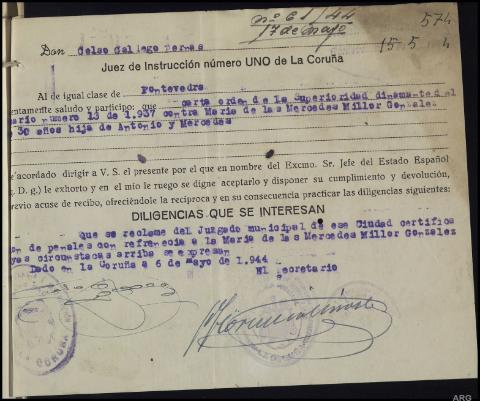 nº 61/44
17 de mayo
574
15-5-4
Don Celso Gallego Pernas
Juez de Instrucción número UNO de La Coruña
Al de igual clase de Pontevedra
entamente saludo y participo: que carta orden de la Superioridad dinamante del
ario numero 13 de 1.937 contra Maria de las Mercedes Millor Gonzalez
e 30 años hija de Antonio y Mercedes
e acordado dirigir a V. S. el presente por el que en nombre del Excmo. Sr. Jefe del Estado Español
q. D. g.) le exhorto y en el mío le ruego se digne aceptarlo y disponer su cumplimiento y devolución,
revio acuse de recibo, ofreciéndole la recíproca y en su consecuencia practicar las diligencias siguientes:
DILIGENCIAS QUE SE INTERESAN
que se reclame del Juzgado municipal de ese Ciudad certifica
on de penales con refrencia a la Maria de las Mercedes Millor Gonzalez
yas circustacas arriba se expresan
Dado en la Coruña a 6 de mayo de 1.944
El secretario
CORUÑA
ARG